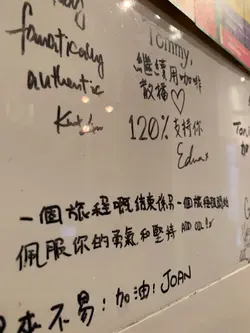 fanatically
authentic
Tommy,
繼續用咖啡
散播♡
120%支持你
一個旅程嘅結束係另一個旅程嘅開始
佩服你的勇氣和堅持 ADD OIL!
不易!加油! JOAN